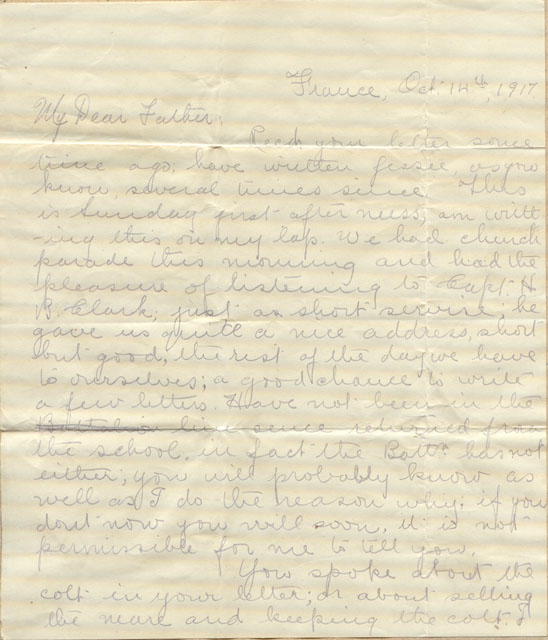 France, Oct. 14th, 1917
My Dear Father:
Recd your letter some
time ago; have written Jessie, as you
know, several times since. This
is Sunday just after mess; am writt
-ing this on my lap. We had church
parade this morning and had the
pleasure of listening to Capt. H
B. Clark; just a short service, he
gave us quite a nice address, short
but good; the rest of the day we have
to ourselves; a good chance to write
a few letters. Have not been in the
line sence returned from
the school, in fact the Battn has not
either; you will probably know as
well as I do the reason why; if you
dont now you will soon, it is not
permissible for me to tell you.
You spoke about the
colt in your letter; or about selling
the mare and keeping the colt. I